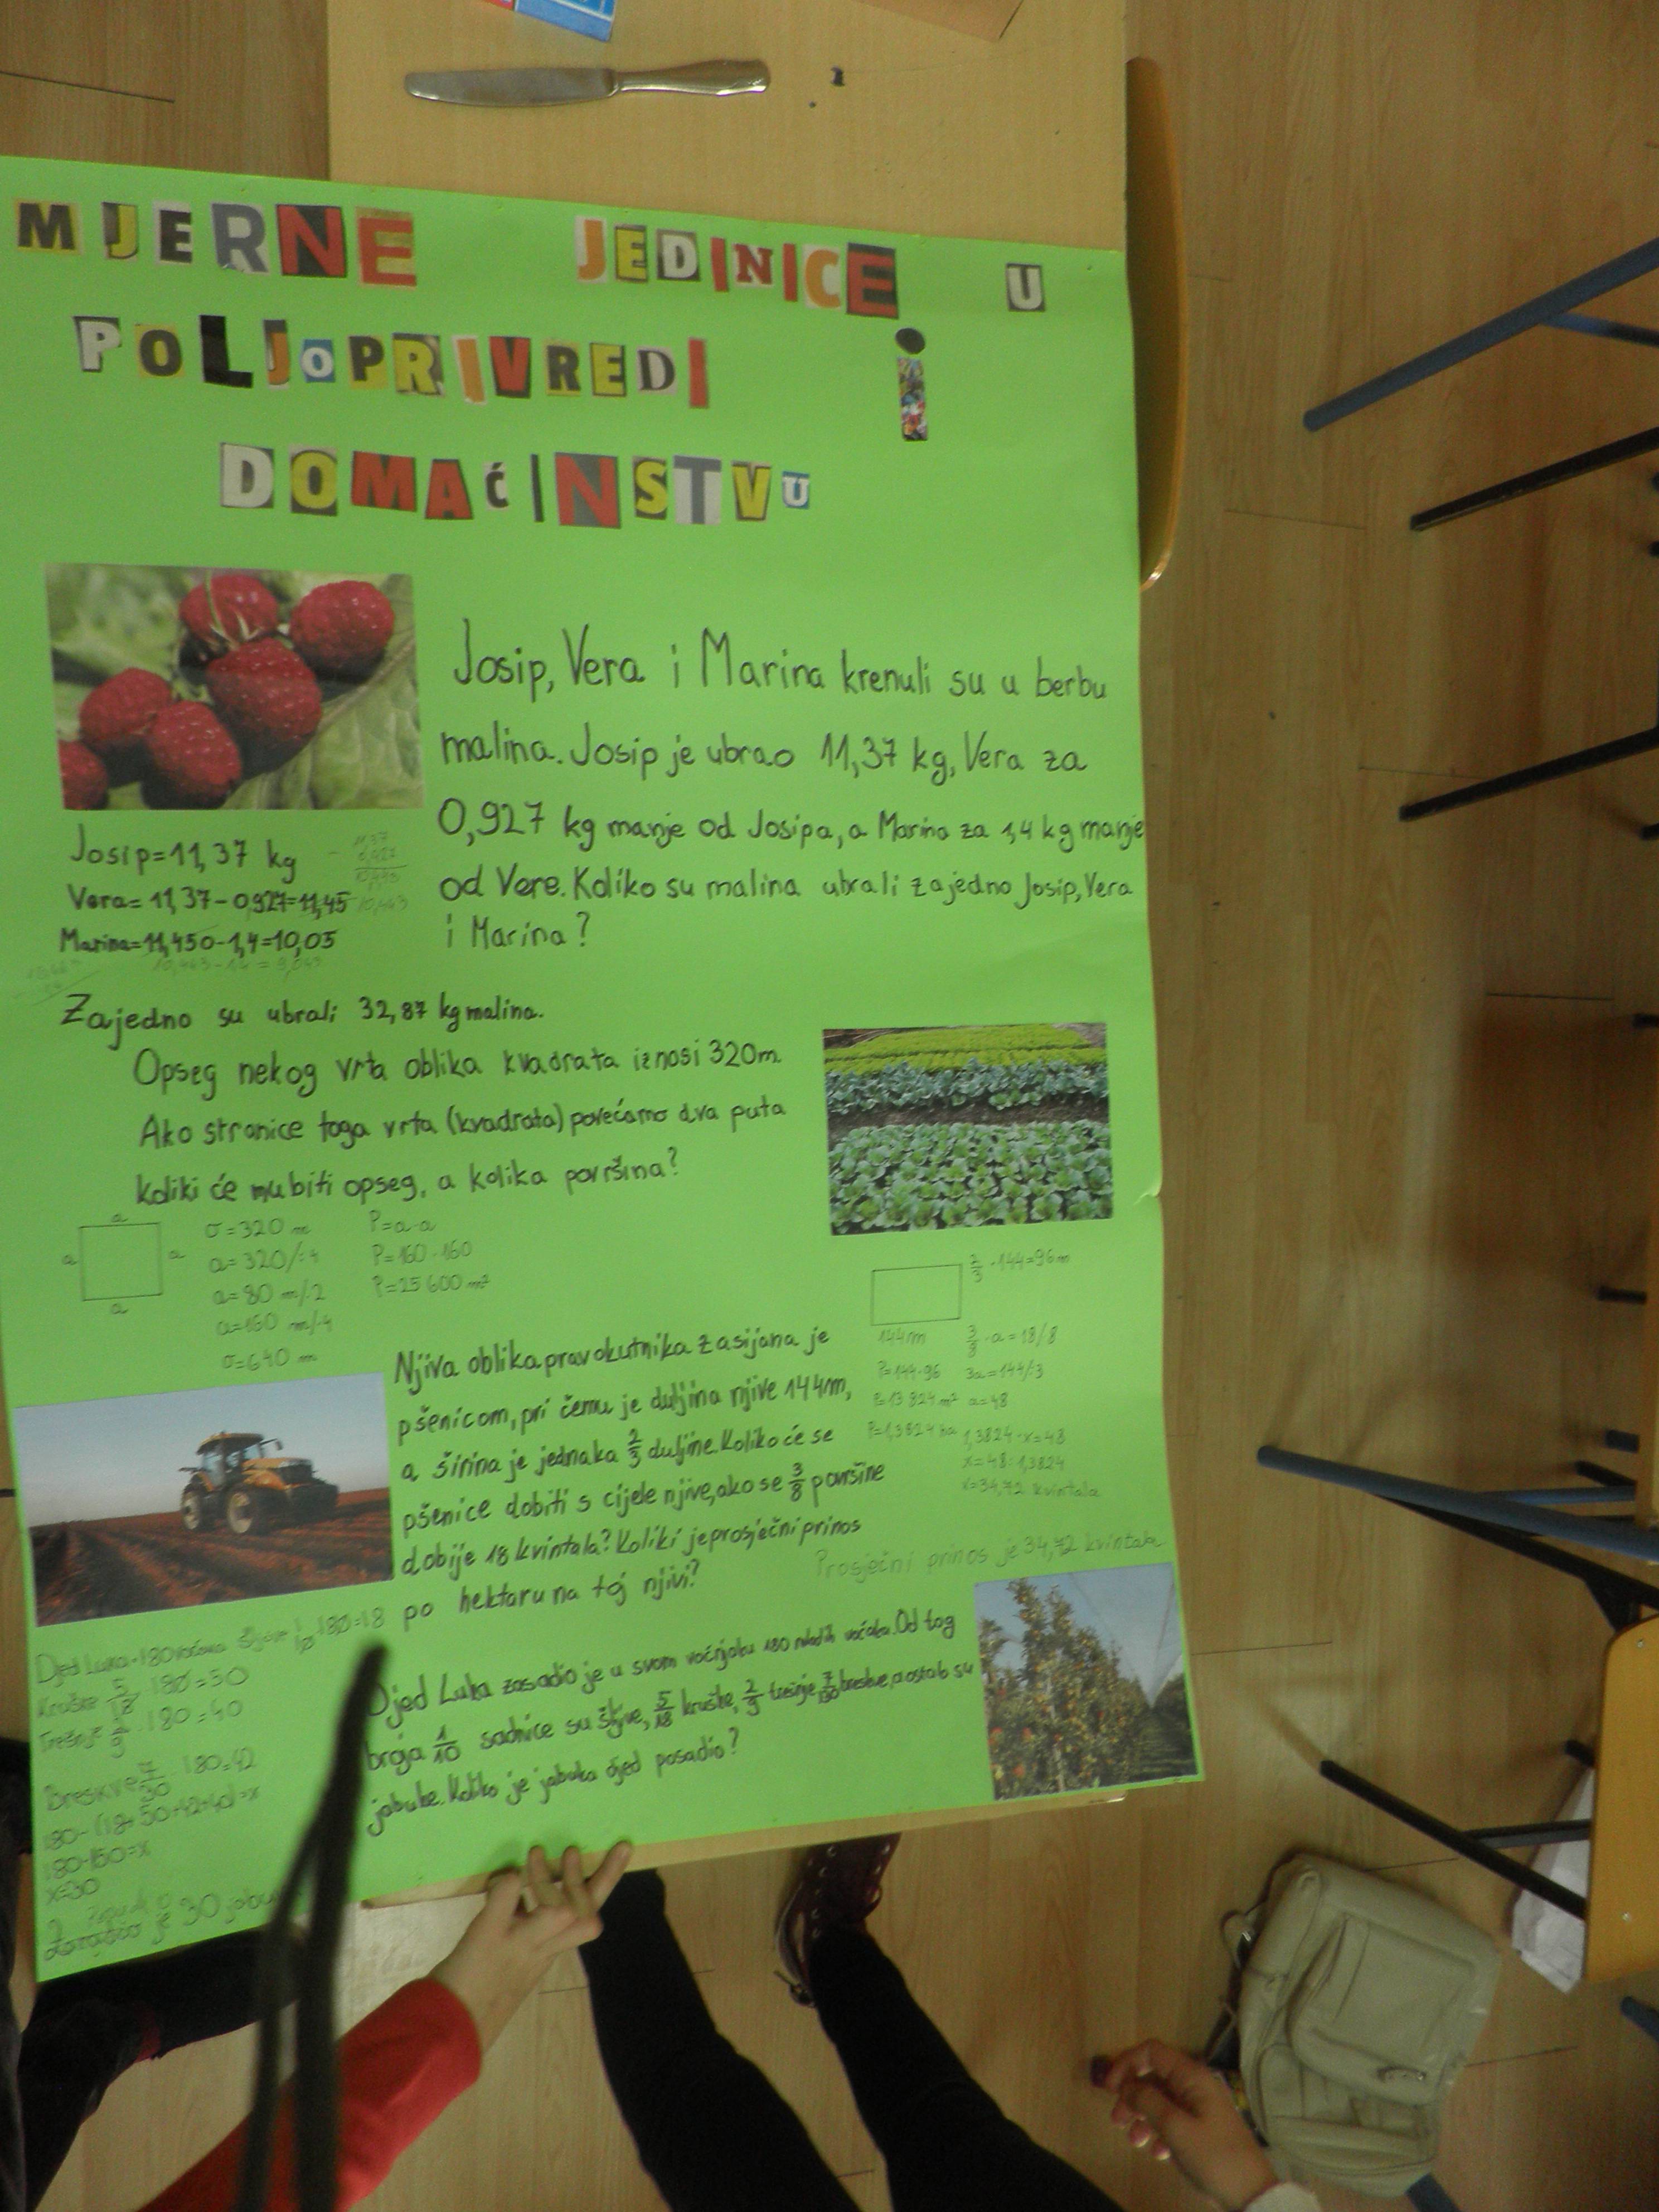 MJERNE JEDINICE U
POLJOPRIVREDI i
DOMAĆINSTVU
Josip, Vera i Marina krenuli su u berbu
malina. Josip je ubrao 11,37 kg, Vera za
0,927 kg manje od Josipa, a Marina za 1,4 kg manje
od Vere. Koliko su malina ubrali zajedno Josip, Vera
i Marina?
Josip=11,37 kg
Vera= 11,37-0,927=11,45
10,443
Marina=11,450-1,4=10,05
10,443-1,4 = 9,043
Zajedno su ubrali 32,87 kg malina.
Opseg nekog vrta oblika kvadrata iznosi 320m.
Ako stranice toga vrta (kvadrata) povećamo dva puta
koliki će mu biti opseg, a kolika površina?
a
a
a
a
σ=320 m
a=320/:4
a=80 m/·2
a=160 m/·4
σ=640 m
P=a·a
P=160·160
P=25600 m²
Njiva oblika pravokutnika zasijana je
pšenicom, pri čemu je duljina njive 144m,
a širina je jednaka 2/3 duljine. Koliko će se
pšenice dobiti s cijele njive, ako se 3/8 površine
dobije 18 kvintala? Koliki je prosječni prinos
po hektaru na toj njivi?
2/3 ·144=96m
144m
P=144·96
P=13 824 m²
P=1,3824 ha
3/8 ·a=18/8
3a=144/:3
a=48
1,3824·x=48
x=48:1,3824
x=34,72 kvintala
Prosječni prinos je 34,72 kvintala
Djed Luka zasadio je u svom voćnjaku 180 mladih voćaka. Od tog
broja 1/10 sadnice su šljive, 5/18 kruške, 2/9 trešnje, 7/30 breskve, a ostalo su
jabuke. Koliko je jabuka djed posadio?
Djed Luka-180 voćaka Šljive 1/10 ·180=18
Kruške 5/18 ·180=50
Trešnje 2/9 ·180=40
Breskve 7/30 ·180=42
180-(18+50+42+40)=x
180-150=x
x=30
je 30